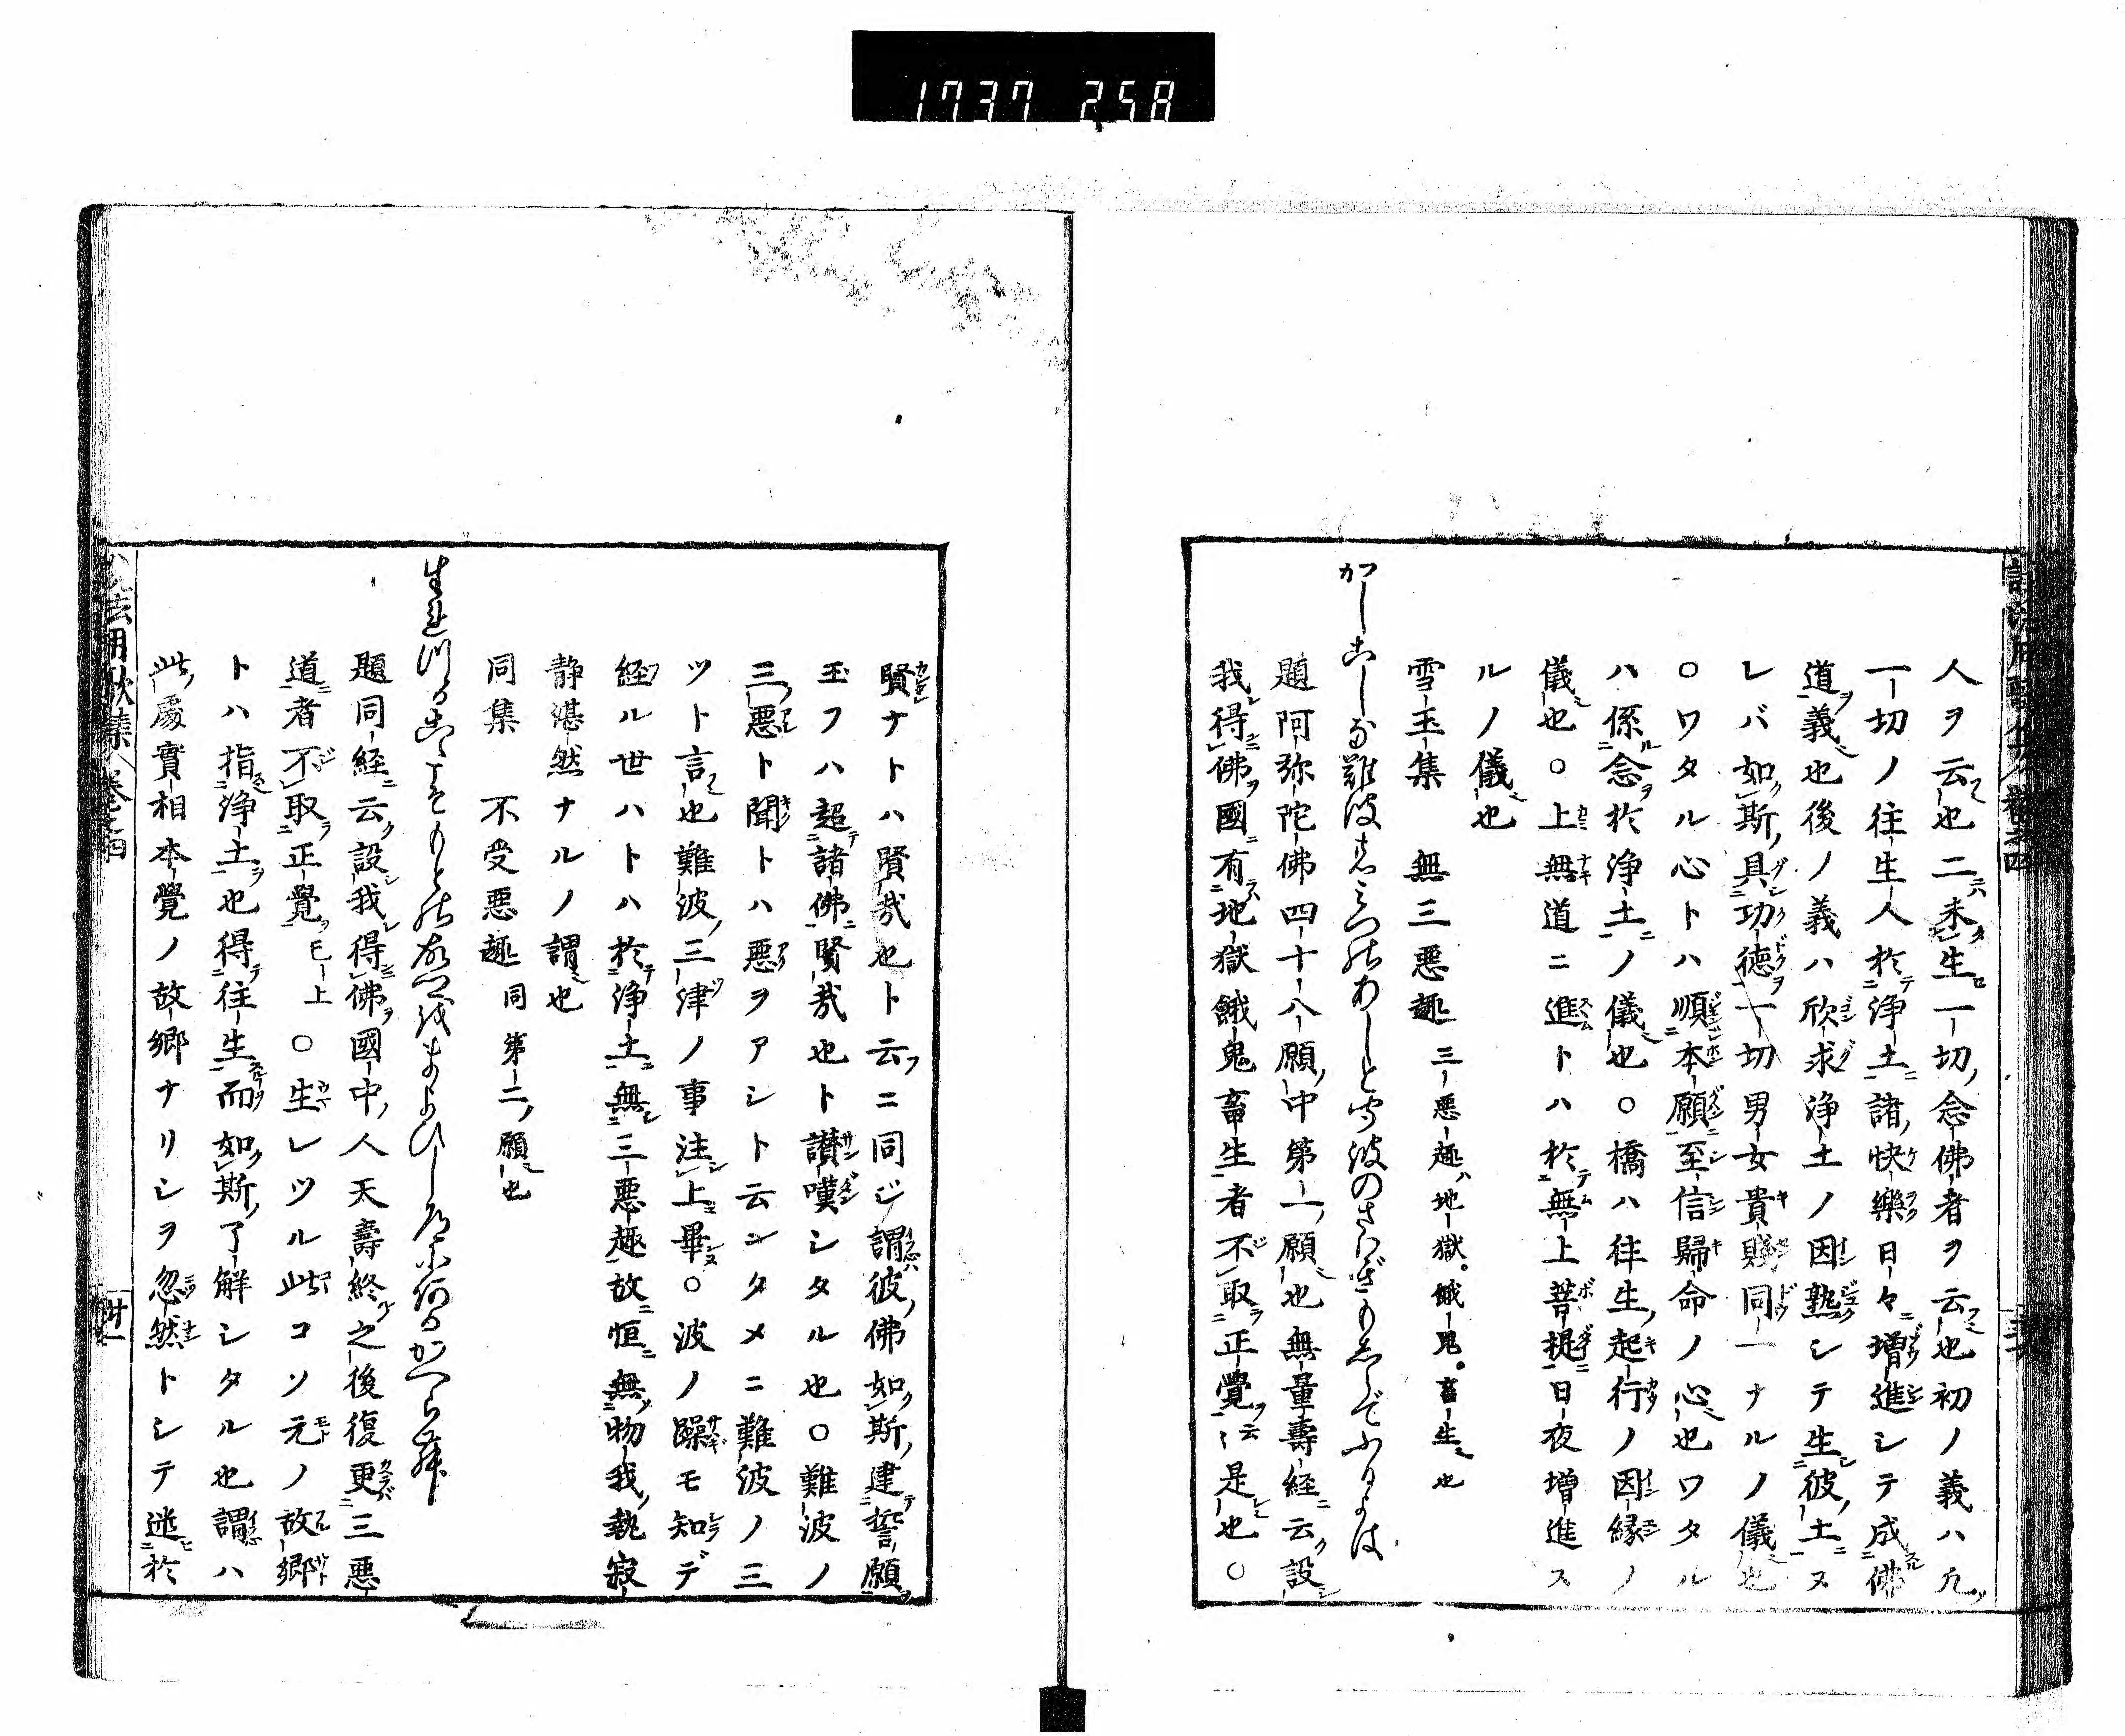 1737 258
人ヲ云也二ニハ未生一切念佛者ヲ云也初ノ義ハ凡
一切ノ往生人於浄土諸快樂日々増進シテ成佛
道義也後ノ義ハ欣求浄土ノ因熟シテ生彼土ヌ
レバ如斯具功徳一切男女貴賤同一ナルノ儀也
○ワタル心トハ順本願至信歸命ノ心也ワタル
ハ係念於浄土ノ儀也○橋ハ往生起行ノ因縁ノ
儀也○上無道ニ進トハ於無上菩提日夜増進ス
ルノ儀也
雪玉集 無三悪趣 三悪趣ハ地獄。餓鬼。畜生也
かしこしな難波みつのあしと聞波のさはぎもしらでふるよは
題阿弥陀佛四十八願中第一願也無量壽経云設
我得佛國有地獄餓鬼畜生者不取正覺云〻是也○
賢ナトハ賢哉也ト云ニ同ジ謂彼佛如斯建誓願
玉フハ超諸佛賢哉也ト讃嘆シタル也○難波ノ
三悪ト聞トハ悪ヲアシト云ンタメニ難波ノ三
ツト言也難波三津ノ事注上畢○波ノ躁モ知デ
経ル世ハトハ於浄土無三悪趣故恒無物我執寂
静湛然ナルノ謂也
同集 不受悪趣 同第二願也
題同経云設我得佛國中人天壽終之後復更三悪
道者不取正覺已上○生レツル此コソ元ノ故郷
トハ指浄土也得往生而如斯了解シタル也謂ハ
此處實相本覺ノ故郷ナリシヲ忽然トシテ迷於
卷之四
卅一